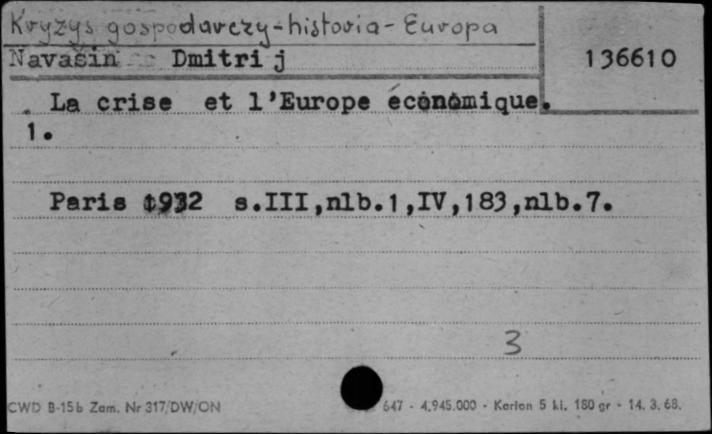 Kryzys gospodarczy-historia-Europa
Navašin Dmitrij
136610
La crise et l'Europe économique.
1.
Paris 1932 s.III,nlb.1,IV,183,nlb.7.
3
CWD B-15b Zam. Nr 317/DW/ON
647 - 4.945.000 - Karton 5 kl. 180 gr - 14. 3. 68.